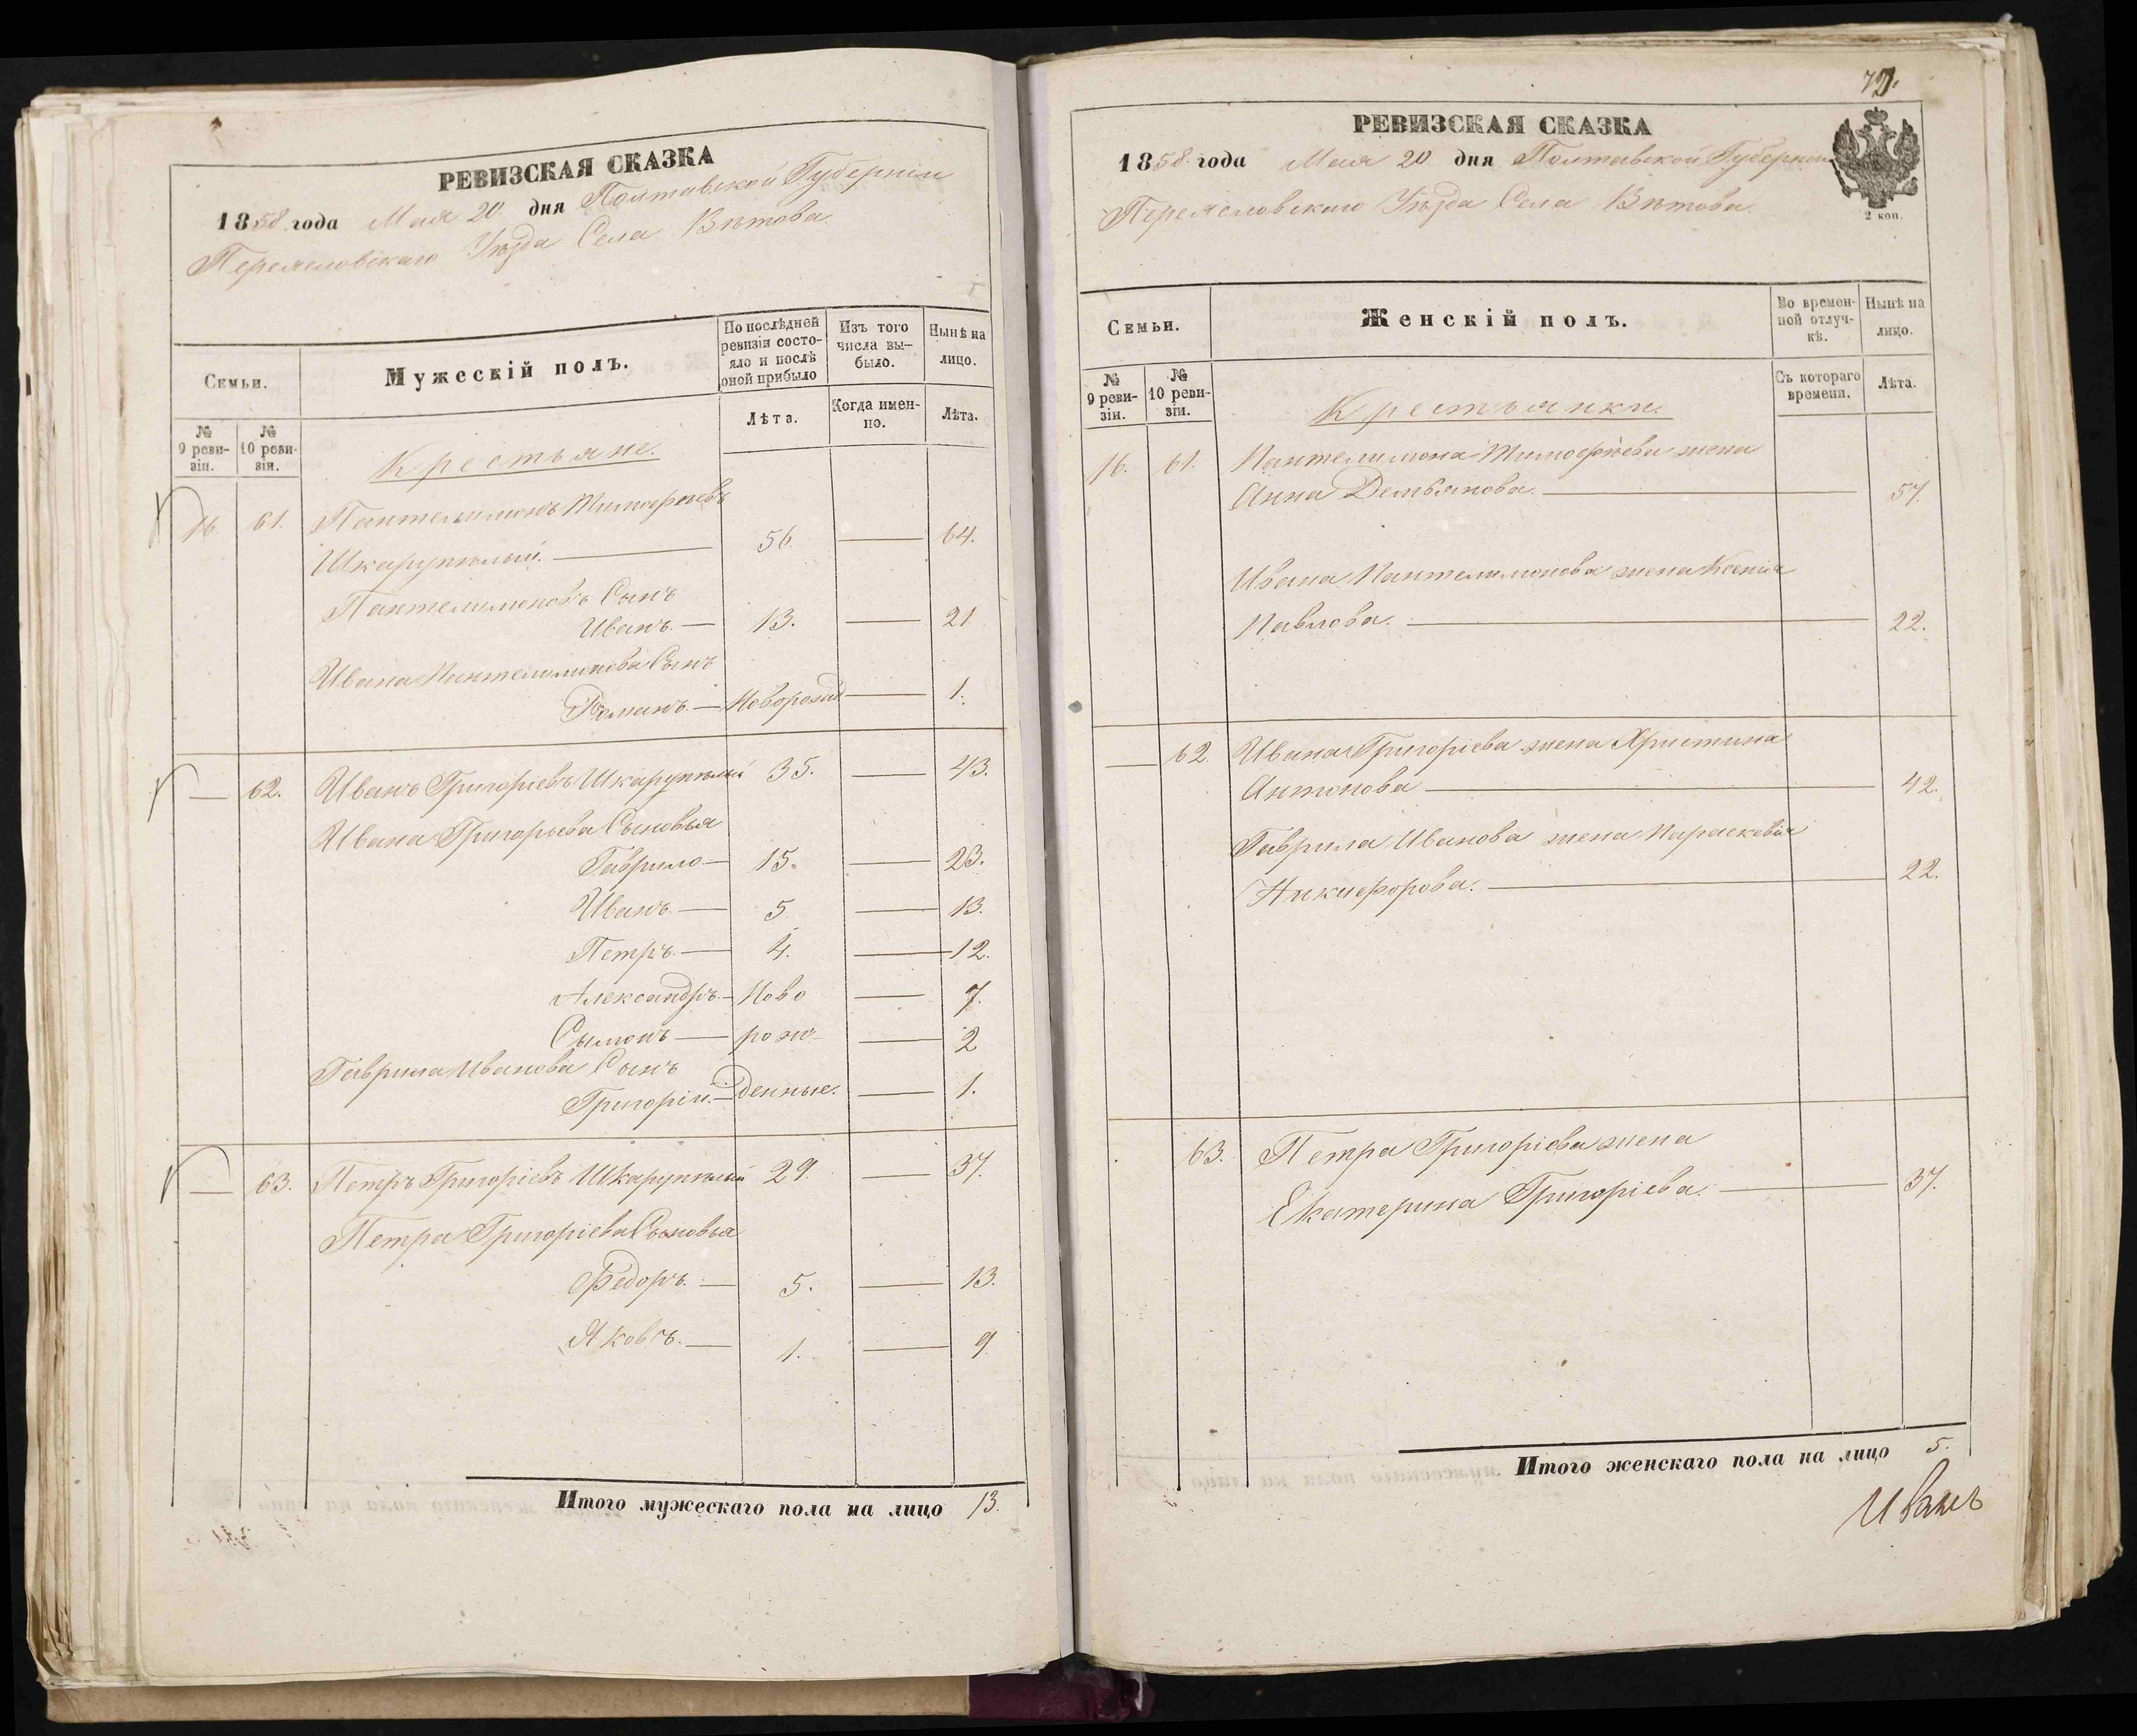 РЕВИЗСКАЯ СКАЗКА
1858 года Мая 20 дня Полтавской Губерніи
Переясловскаго Уѣзда Села Вѣтова.
Семьи.
Мужескій полъ.
По послѣдней ревизіи состояло и послѣ оной прибыло
Изъ того числа выбыло.
Нынѣ на лицо.
№ 9 ревизіи.
№ 10 ревизіи.
Лѣта.
Когда именно.
Лѣта.
Крестьяне.
16. 61. Пантелимонъ Тимофѣевъ
Шкарупѣлый. — 56. — 64.
Пантелимоновъ Сынъ
Иванъ. — 13. — 21
Ивана Пантелимонова Сынъ
Романъ. — Новорожд — 1.
— 62. Иванъ Григоріевъ Шкарупѣлый 35. — 43.
Ивана Григорьева Сыновья
Гаврило — 15. — 23.
Иванъ. — 5 — 13.
Петръ. — 4. — 12.
Александръ. — Ново — 7.
Сымонъ — рож — 2
Гаврила Иванова Сынъ
Григорій. — денные. — 1.
— 63. Петръ Григоріевъ Шкарупѣлый 29. — 37.
Петра Григоріева Сыновья
Федоръ. — 5. — 13.
Яковъ. — 1. — 9
Итого мужескаго пола на лицо 13.
72.
РЕВИЗСКАЯ СКАЗКА
1858 года Мая 20 дня Полтавской Губерніи
Переясловскаго Уѣзда Села Вѣтова.
2 коп.
Семьи.
Женскій полъ.
Во временной отлучкѣ.
Нынѣ на лицо.
№ 9 ревизіи.
№ 10 ревизіи.
Съ котораго времени.
Лѣта.
Крестьянки.
16. 61. Пантелимона Тимофѣева жена
Анна Демьянова. — 57.
Ивана Пантелимонова жена Ксенія
Павлова. — 22.
— 62. Ивана Григоріева жена Христина
Антонова — 42.
Гаврила Иванова жена Параскевія
Никифорова. — 22.
63. Петра Григоріева жена
Екатерина Григоріева. — 37.
Итого женскаго пола на лицо 5.
Иванъ